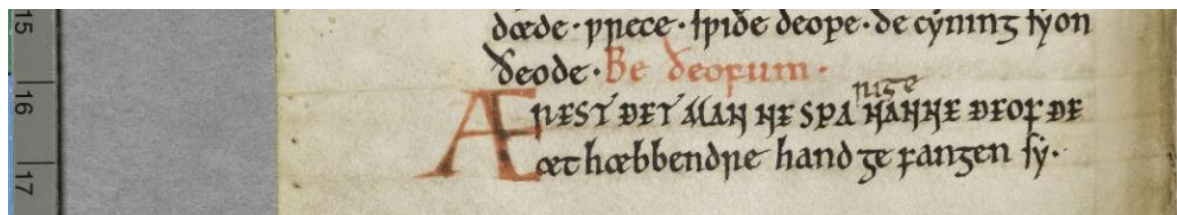 15
16
17
dæde · ƿrece · sƿiðe deope · ðe cẏning sẏ on
ðeode · Be ðeofum ·
rige
ÆREST ÐET MAN NE SPA NANNE ÐEOF ÐE
æt hæbbendre hand ge fangen sẏ ·